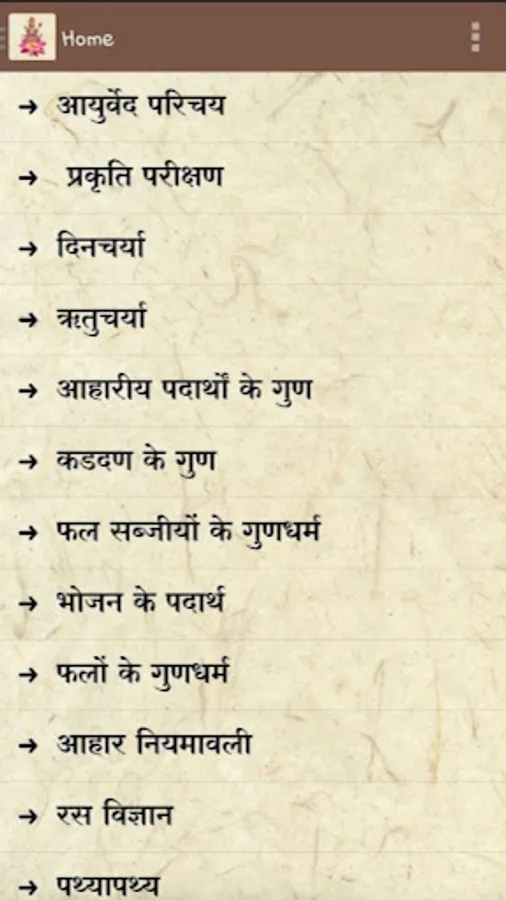 Home
→ आयुर्वेद परिचय
→ प्रकृति परीक्षण
→ दिनचर्या
→ ऋतुचर्या
→ आहारीय पदार्थों के गुण
→ कडदण के गुण
→ फल सब्जीयों के गुणधर्म
→ भोजन के पदार्थ
→ फलों के गुणधर्म
→ आहार नियमावली
→ रस विज्ञान
→ पथ्यापथ्य